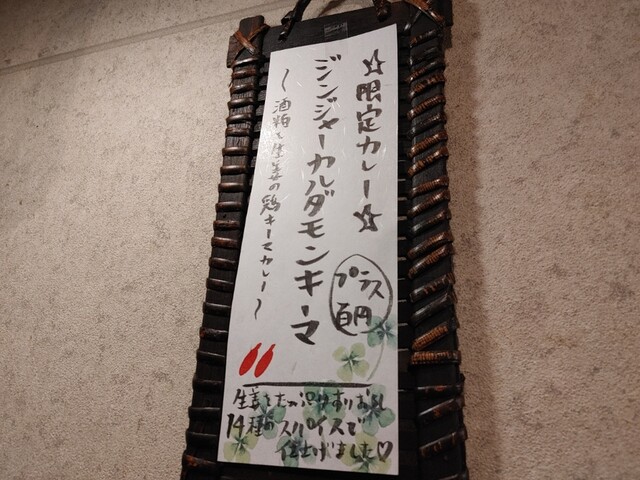 ☆限定カレー☆
ジンジャーカルダモンキーマ
〜酒粕と生姜の鶏キーマカレー〜
プラス
百円
生姜をたっぷりすりおろし
14種のスパイスで
仕上げました♡